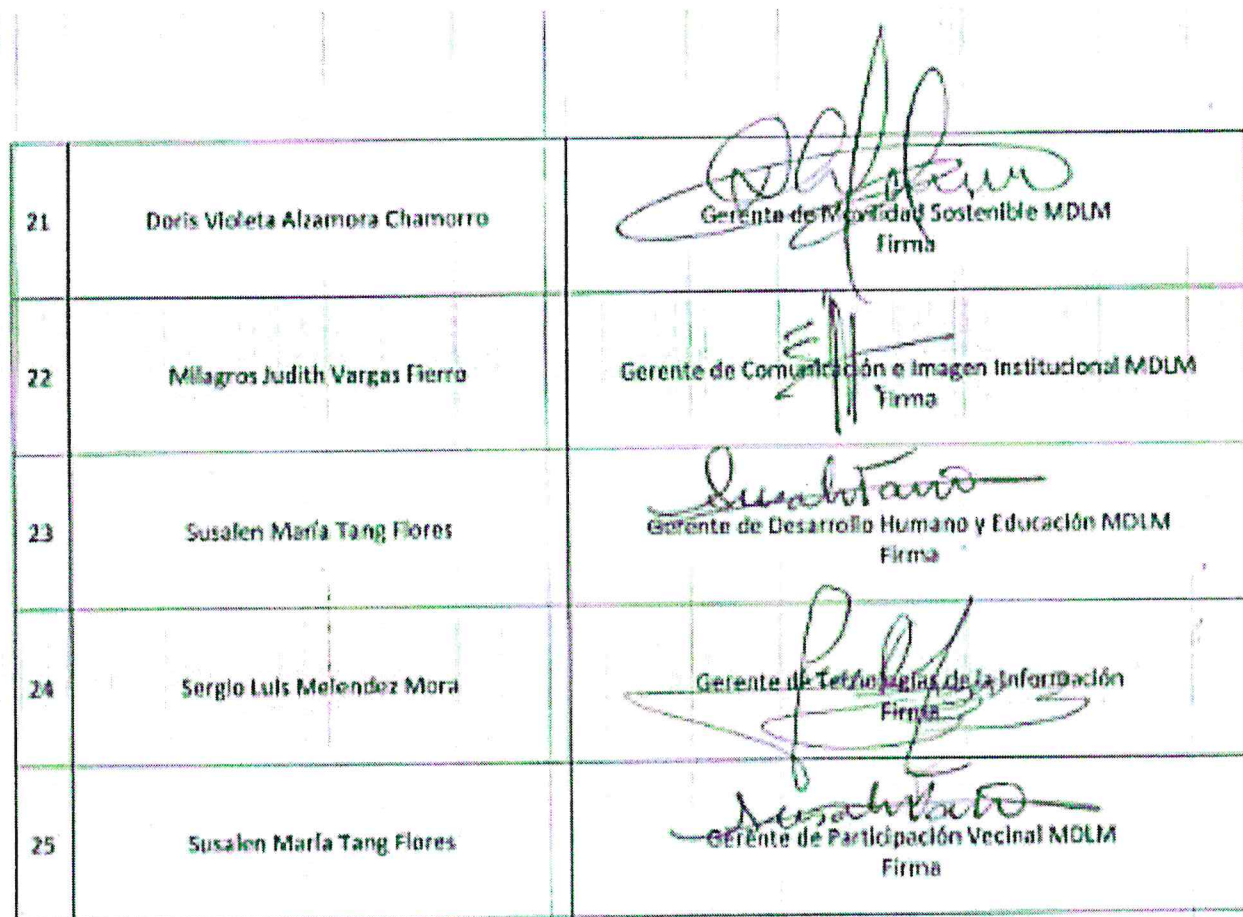 21
Doris Violeta Alzamora Chamorro
Gerente de Movilidad Sostenible MDLM
Firma
22
Milagros Judith Vargas Fierro
Gerente de Comunicación e Imagen Institucional MDLM
Firma
23
Susalen María Tang Flores
Gerente de Desarrollo Humano y Educación MDLM
Firma
24
Sergio Luis Melendez Mora
Gerente de Tecnologías de la Información
Firma
25
Susalen María Tang Flores
Gerente de Participación Vecinal MDLM
Firma